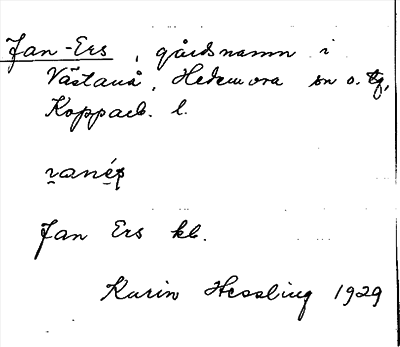 Jan-Ers, gårdsnamn i
Västanå, Hedemora sn o. tg,
Kopparb. l.
Jan Ers kb.
Karin Hessling 1929